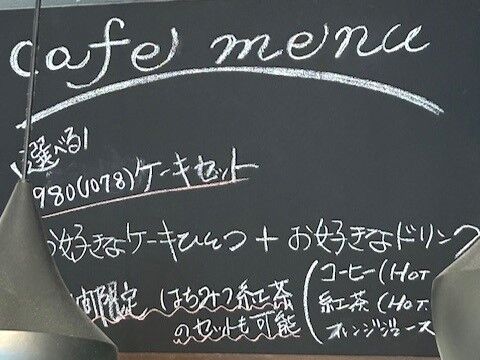 cafe menu
選べる!
980(1078)ケーキセット
お好きなケーキひとつ + お好きなドリン
限定 はちみつ紅茶
のセットも可能
コーヒー(HOT
紅茶(HOT
オレンジジュース